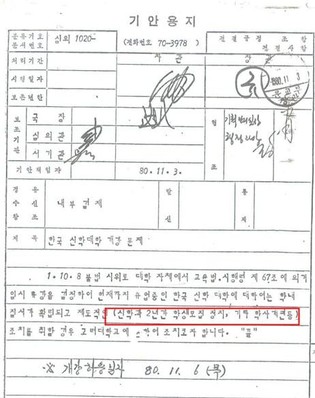 기안용지
분류기호
문서번호
심의 1020-
(전화번호 70-3978)
전결규정 조 항
전결사항
처리기간
차관 장관
시행일자
보존년한
국장
심의관
서기관
보조기관
기안책임자
80. 11. 3.
경유
수신
참조
내부결재
발신
통제
제목 한국 신학대학 개강 문제
1. 10. 8 불법 시위로 대학 자체에서 교육법 시행령 제 67조에 의거
임시 휴강을 결정하여 현재까지 휴업중인 한국 신학 대학에 대하여는 학내
질서가 확립되고 제도적인 (신학과 2년간 학생모집 정지, 기타 학사개편등)
조치를 취할 경우 고려
조치코자 합니다. "끝"
※ 개강 예정일자 80. 11. 6 (목)